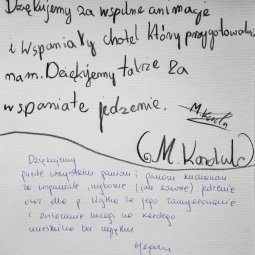 Dziękujemy za wspólne animacje
i Wspaniały hotel który przygotował
nam. Dziękujemy także za
wspaniałe jedzenie.
(M. Korduk)
Dziękujemy
przede wszystkim paniom i panom kucharzom
za wspaniałe, wyborne (jak zawsze) jedzenie
oraz dla p. za jego zaangażowanie
i zwracanie uwagi na każdego
bez wyjątku